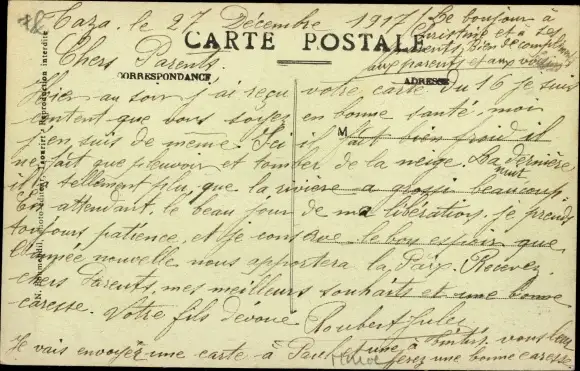 Taza. le 27 Décembre 1917
Le boujour à
Christine et à ses
parents, bien de compliments
aux parents et aux voisins
CARTE POSTALE
Chers Parents.
CORRESPONDANCE
ADRESSE
Hier au soir j'ai reçu votre carte du 16 je suis
content que vous soyez en bonne santé, moi
j'en suis de même. Ici il fait bien froid il
ne fait que pleuvoir et tomber de la neige. La dernière
nuit
il a tellement plu, que la rivière a grossi beaucoup
En attendant, le beau jour de ma libération, je prends
toujours patience, et je conserve le bon espoir que
l'année nouvelle nous apportera la Paix. Recevez
chers Parents, mes meilleurs souhaits et une bonne
caresse. Votre fils dévoué Roubert Jule
Je vais envoyer une carte à Paul une à vous leur
ferez une bonne caresse
Reproduction interdite